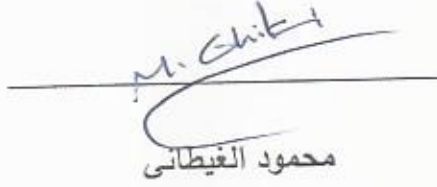 M. Ghitani
محمود الغيطانى